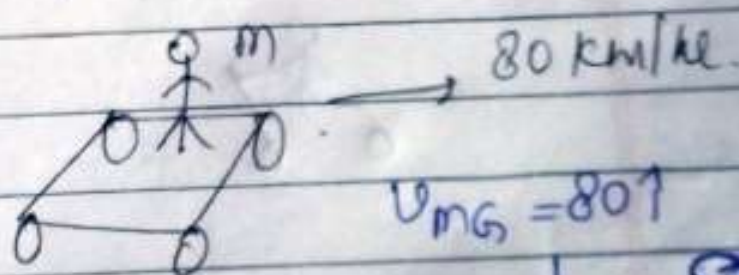 m
80 km/hr.
V_mG = 80↑